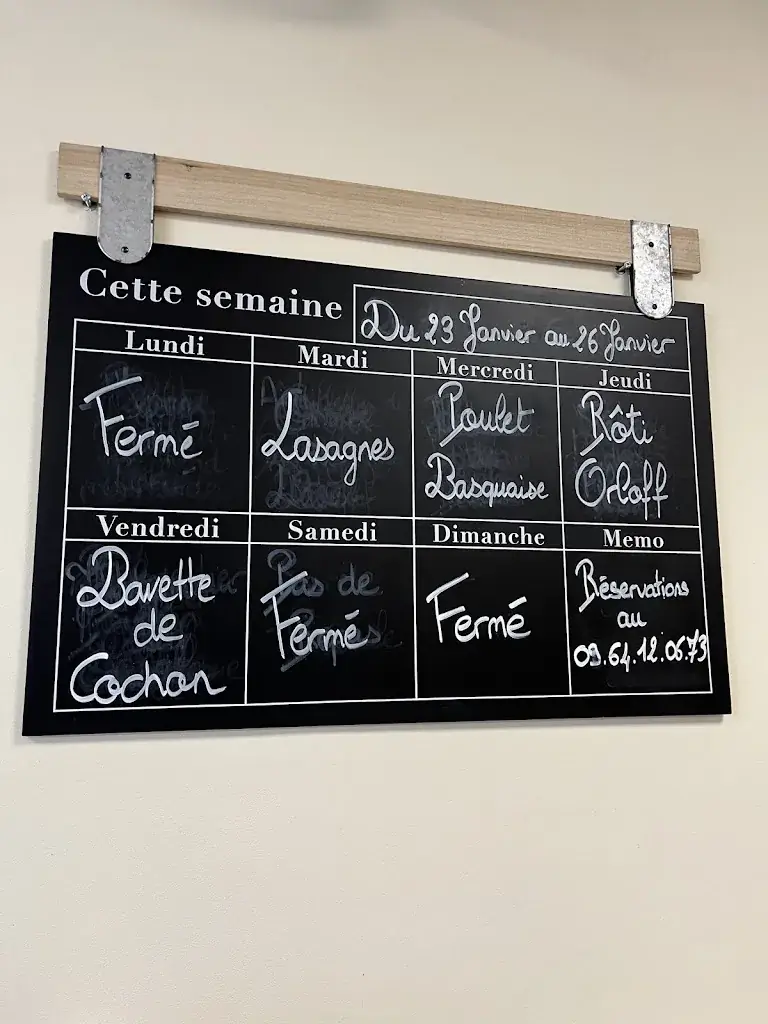 Cette semaine
Du 23 Janvier au 26 Janvier
Lundi
Fermé
Mardi
Lasagnes
Mercredi
Poulet
Basquaise
Jeudi
Rôti
Orloff
Vendredi
Bavette
de
Cochon
Samedi
Fermés
Dimanche
Fermé
Memo
Réservations
au
09.64.12.06.73